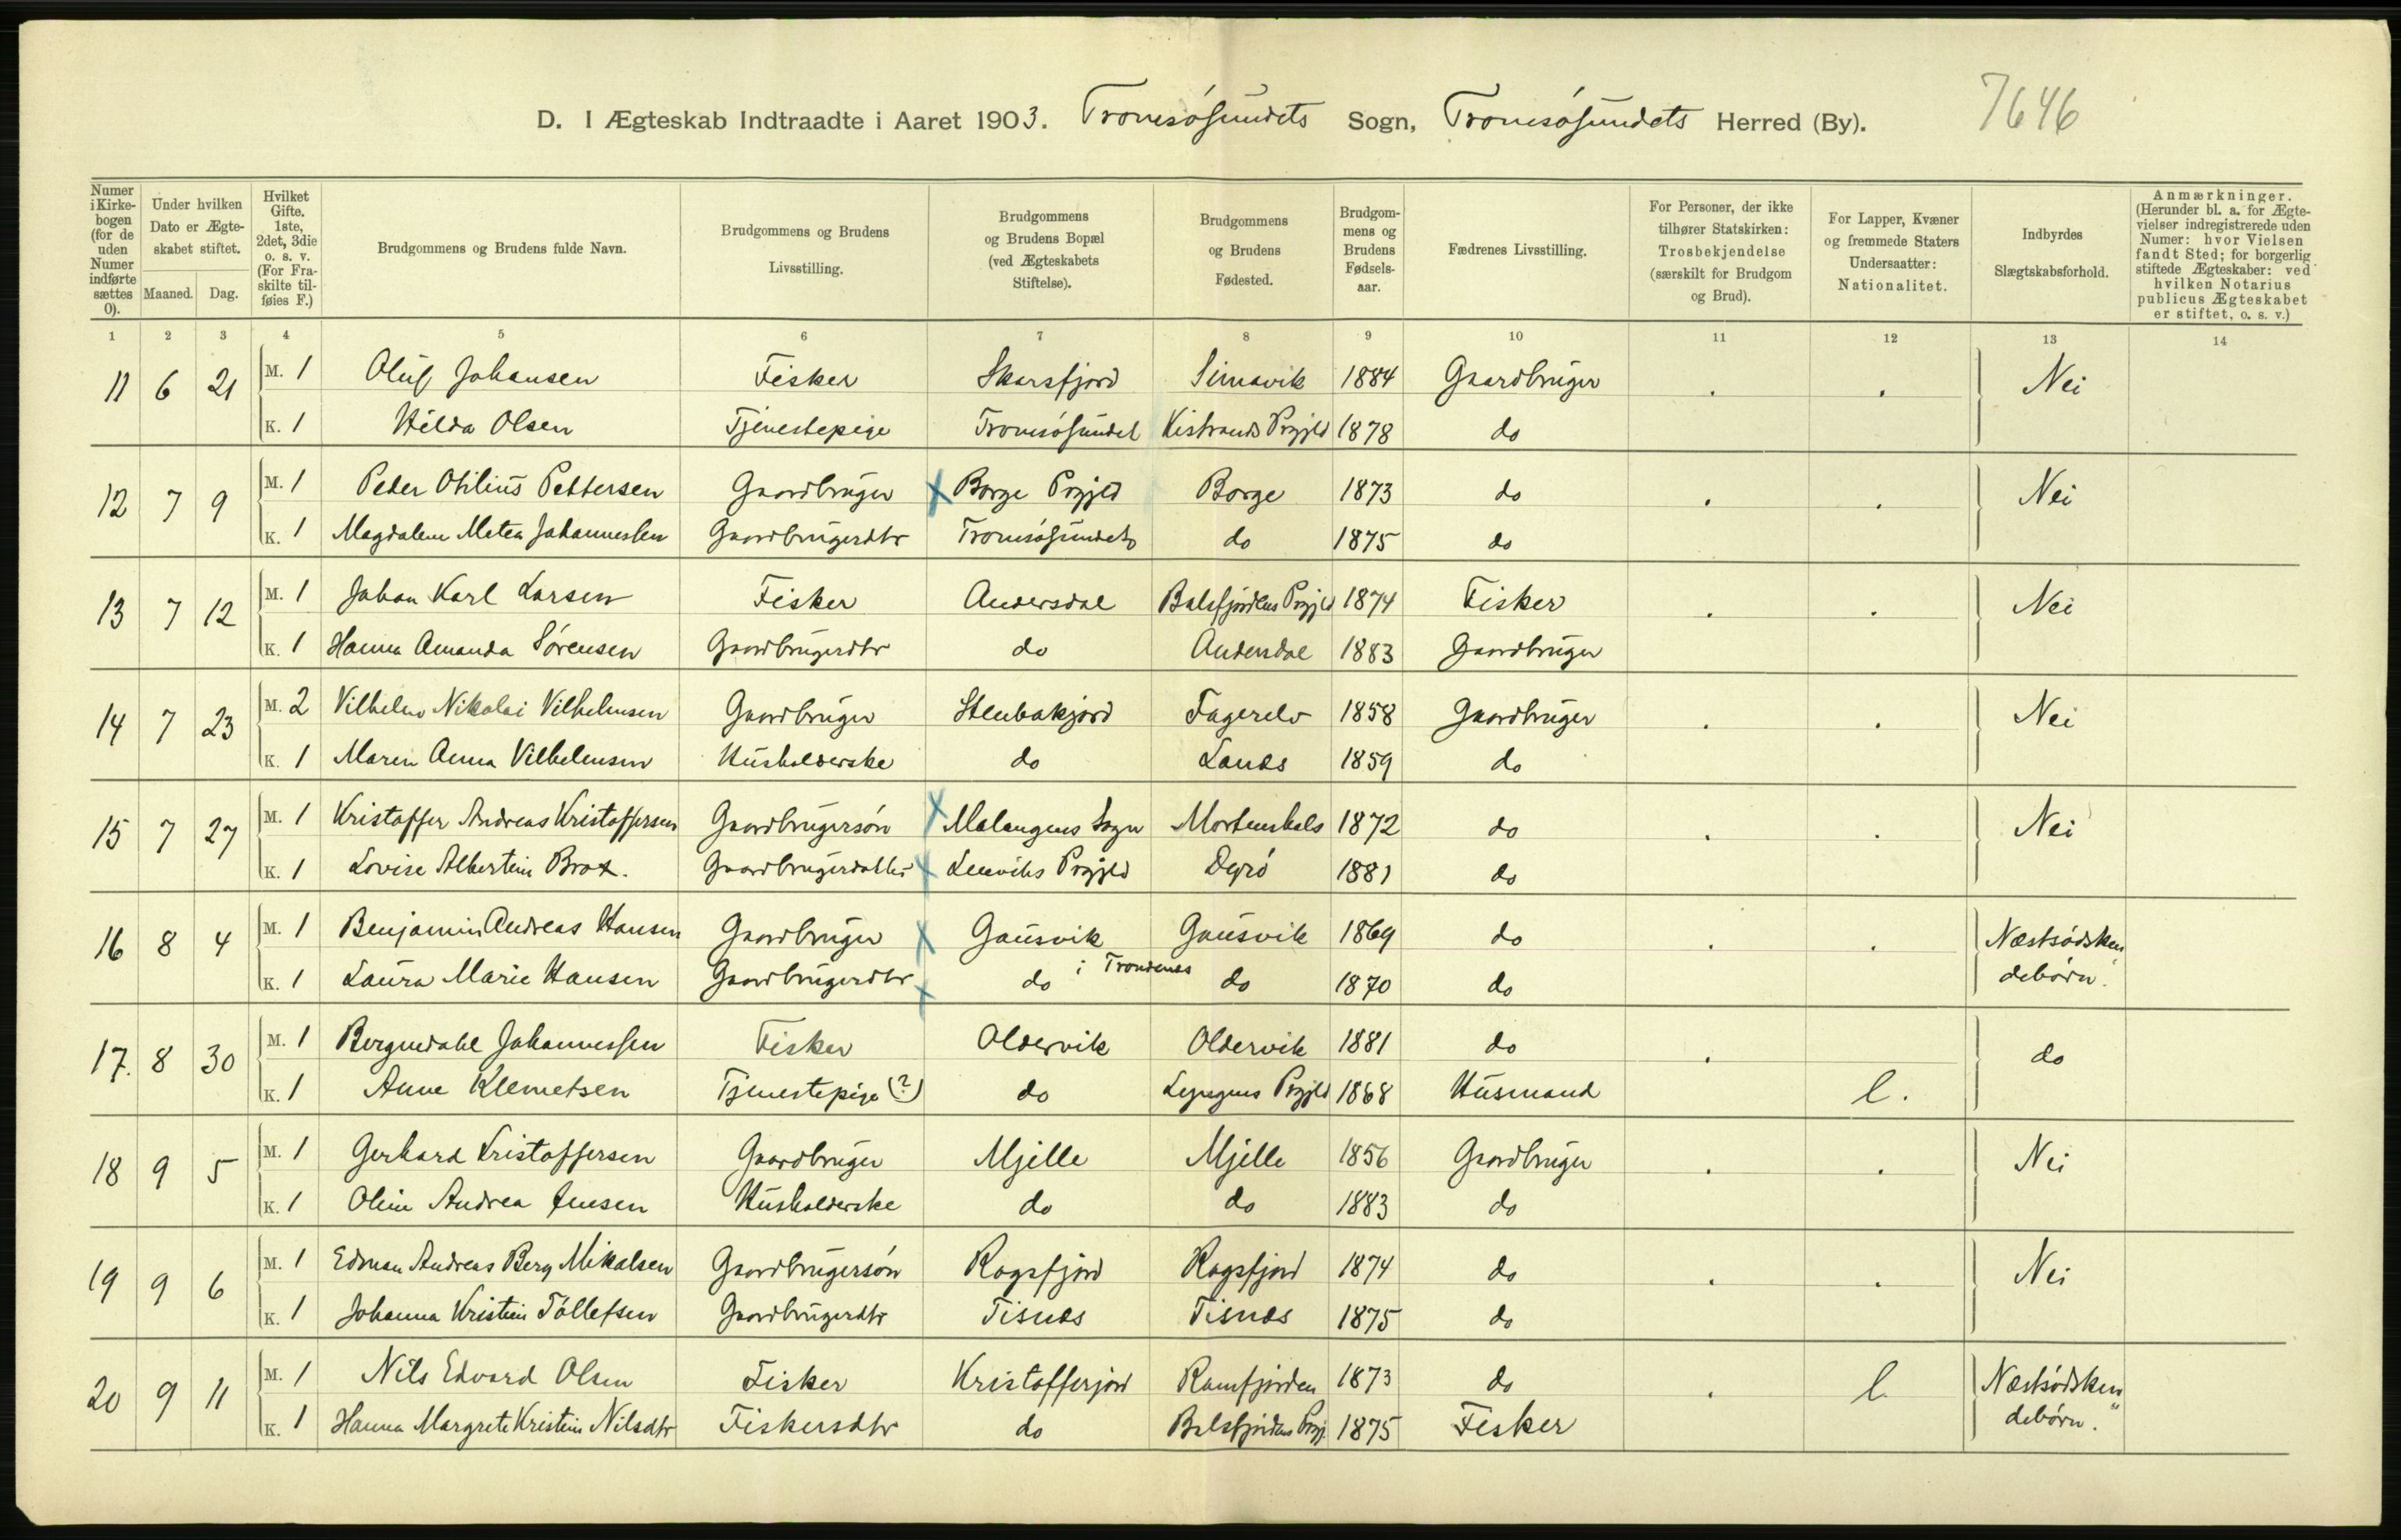 D. I Ægteskab Indtraadte i Aaret 1903. Tromsøsundets Sogn, Tromsøsundets Herred (By). 7646
Numer i Kirkebogen (for de uden Numer indførte sættes 0). Under hvilken Dato er Ægteskabet stiftet. Maaned. Dag. Hvilket Gifte. 1ste, 2det, 3die o. s. v. (For Fraskilte tilføies F.) Brudgommens og Brudens fulde Navn. Brudgommens og Brudens Livsstilling. Brudgommens og Brudens Bopæl (ved Ægteskabets Stiftelse). Brudgommens og Brudens Fødested. Brudgommens og Brudens Fødselsaar. Fædrenes Livsstilling. For Personer, der ikke tilhører Statskirken: Trosbekjendelse (særskilt for Brudgom og Brud). For Lapper, Kvæner og fremmede Staters Undersaatter: Nationalitet. Indbyrdes Slægtskabsforhold. Anmærkninger. (Herunder bl. a. for Ægtevielser indregistrerede uden Numer: hvor Vielsen fandt Sted; for borgerlig stiftede Ægteskaber: ved hvilken Notarius publicus Ægteskabet er stiftet, o. s. v.)
1 2 3 4 5 6 7 8 9 10 11 12 13 14
11 6 21 M. 1 Oluf Johansen Fisker Skarsfjord Simavik 1884 Gaardbruger . . Nei
K. 1 Hilda Olsen Tjenestepige Tromsøsundet Kistrands Prgjld 1878 do
12 7 9 M. 1 Peder Otilius Pettersen Gaardbruger x Borge Prgjld Borge 1873 do . . Nei
K. 1 Magdalene Metea Johannessen Gaardbrugerdtr Tromsøsundets do 1875 do
13 7 12 M. 1 Johan Karl Larsen Fisker Andersdal Balsfjordens Prgjld 1874 Fisker . . Nei
K. 1 Hanna Amanda Sørensen Gaardbrugerdtr do Andersdal 1883 Gaardbruger
14 7 23 M. 2 Vilhelm Nikolai Vilhelmsen Gaardbruger Stenbakjord Fagerelv 1858 Gaardbruger . . Nei
K. 1 Maren Anna Vilhelmsen Husholderske do Lanes 1859 do
15 7 27 M. 1 Kristoffer Andreas Kristoffersen Gaardbrugersøn x Malangens Sogn Mortenshals 1872 do . . Nei
K. 1 Lovise Albertine Brox. Gaardbrugerdatter x Lenviks Prgjld Dyrø 1881 do
16 8 4 M. 1 Benjamin Andreas Hansen Gaardbruger x Gausvik Gausvik 1869 do . . Næstsødsken
K. 1 Laura Marie Hansen Gaardbrugerdtr x do i Trondenes do 1870 do debørn.
17. 8 30 M. 1 Bergnedahl Johannessen Fisker Oldervik Oldervik 1881 do . do
K. 1 Anne Klemetsen Tjenestepige (?) do Lyngens Prgjld 1868 Husmand l.
18 9 5 M. 1 Gerhard Kristoffersen Gaardbruger Mjelle Mjelle 1856 Gaardbruger . . Nei
K. 1 Oline Andrea Jensen Husholderske do do 1883 do
19 9 6 M. 1 Edman Andreas Berg Mikalsen Gaardbrugersøn Ragsfjord Ragsfjord 1874 do . . Nei
K. 1 Johanna Kristine Tollefsen Gaardbrugerdtr Tisnes Tisnes 1875 do
20 9 11 M. 1 Nils Edvard Olsen Fisker Kristofferjord Ramfjorden 1873 do . l Næstsødsken
K. 1 Hanna Margrete Kristine Nilsdtr Fiskersdtr do Balsfjordens Prgj. 1875 Fisker debørn.